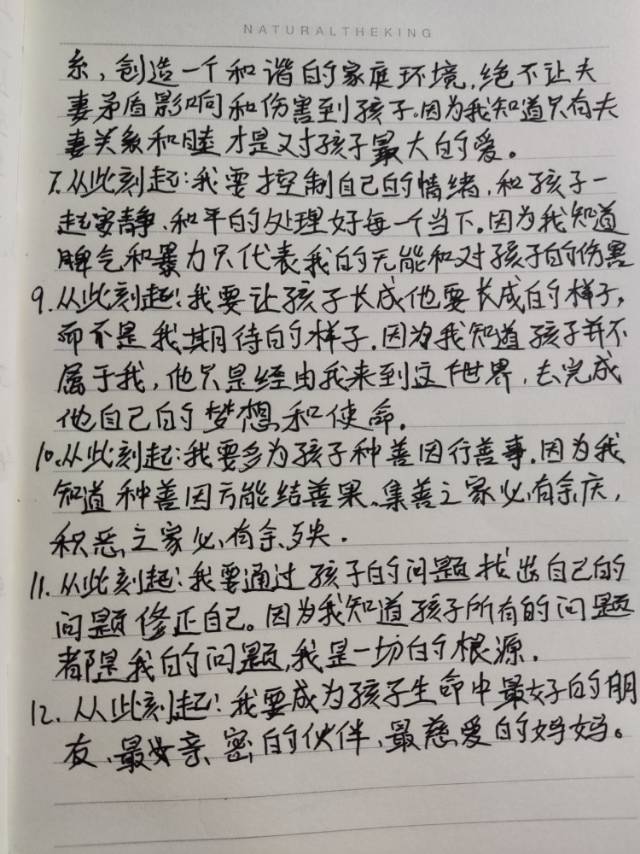 NATURALTHEKING
系，创造一个和谐的家庭环境，绝不让夫
妻矛盾影响和伤害到孩子。因为我知道只有夫
妻关系和睦才是对孩子最大的爱。
8.从此刻起：我要控制自己的情绪，和孩子一
起安静、和平的处理好每一个当下。因为我知道
脾气和暴力只代表我的无能和对孩子的伤害
9.从此刻起！我要让孩子长成他要长成的样子，
而不是我期待的样子。因为我知道孩子并不
属于我，他只是经由我来到这个世界，去完成
他自己的梦想和使命。
10.从此刻起：我要多为孩子种善因行善事。因为我
知道种善因方能结善果、集善之家必有余庆，
积恶之家必有余殃.
11.从此刻起！我要通过孩子的问题找出自己的
问题修正自己。因为我知道孩子所有的问题
都是我的问题，我是一切的根源.
12.从此刻起！我要成为孩子生命中最好的朋
友、最亲密的伙伴、最慈爱的妈妈。